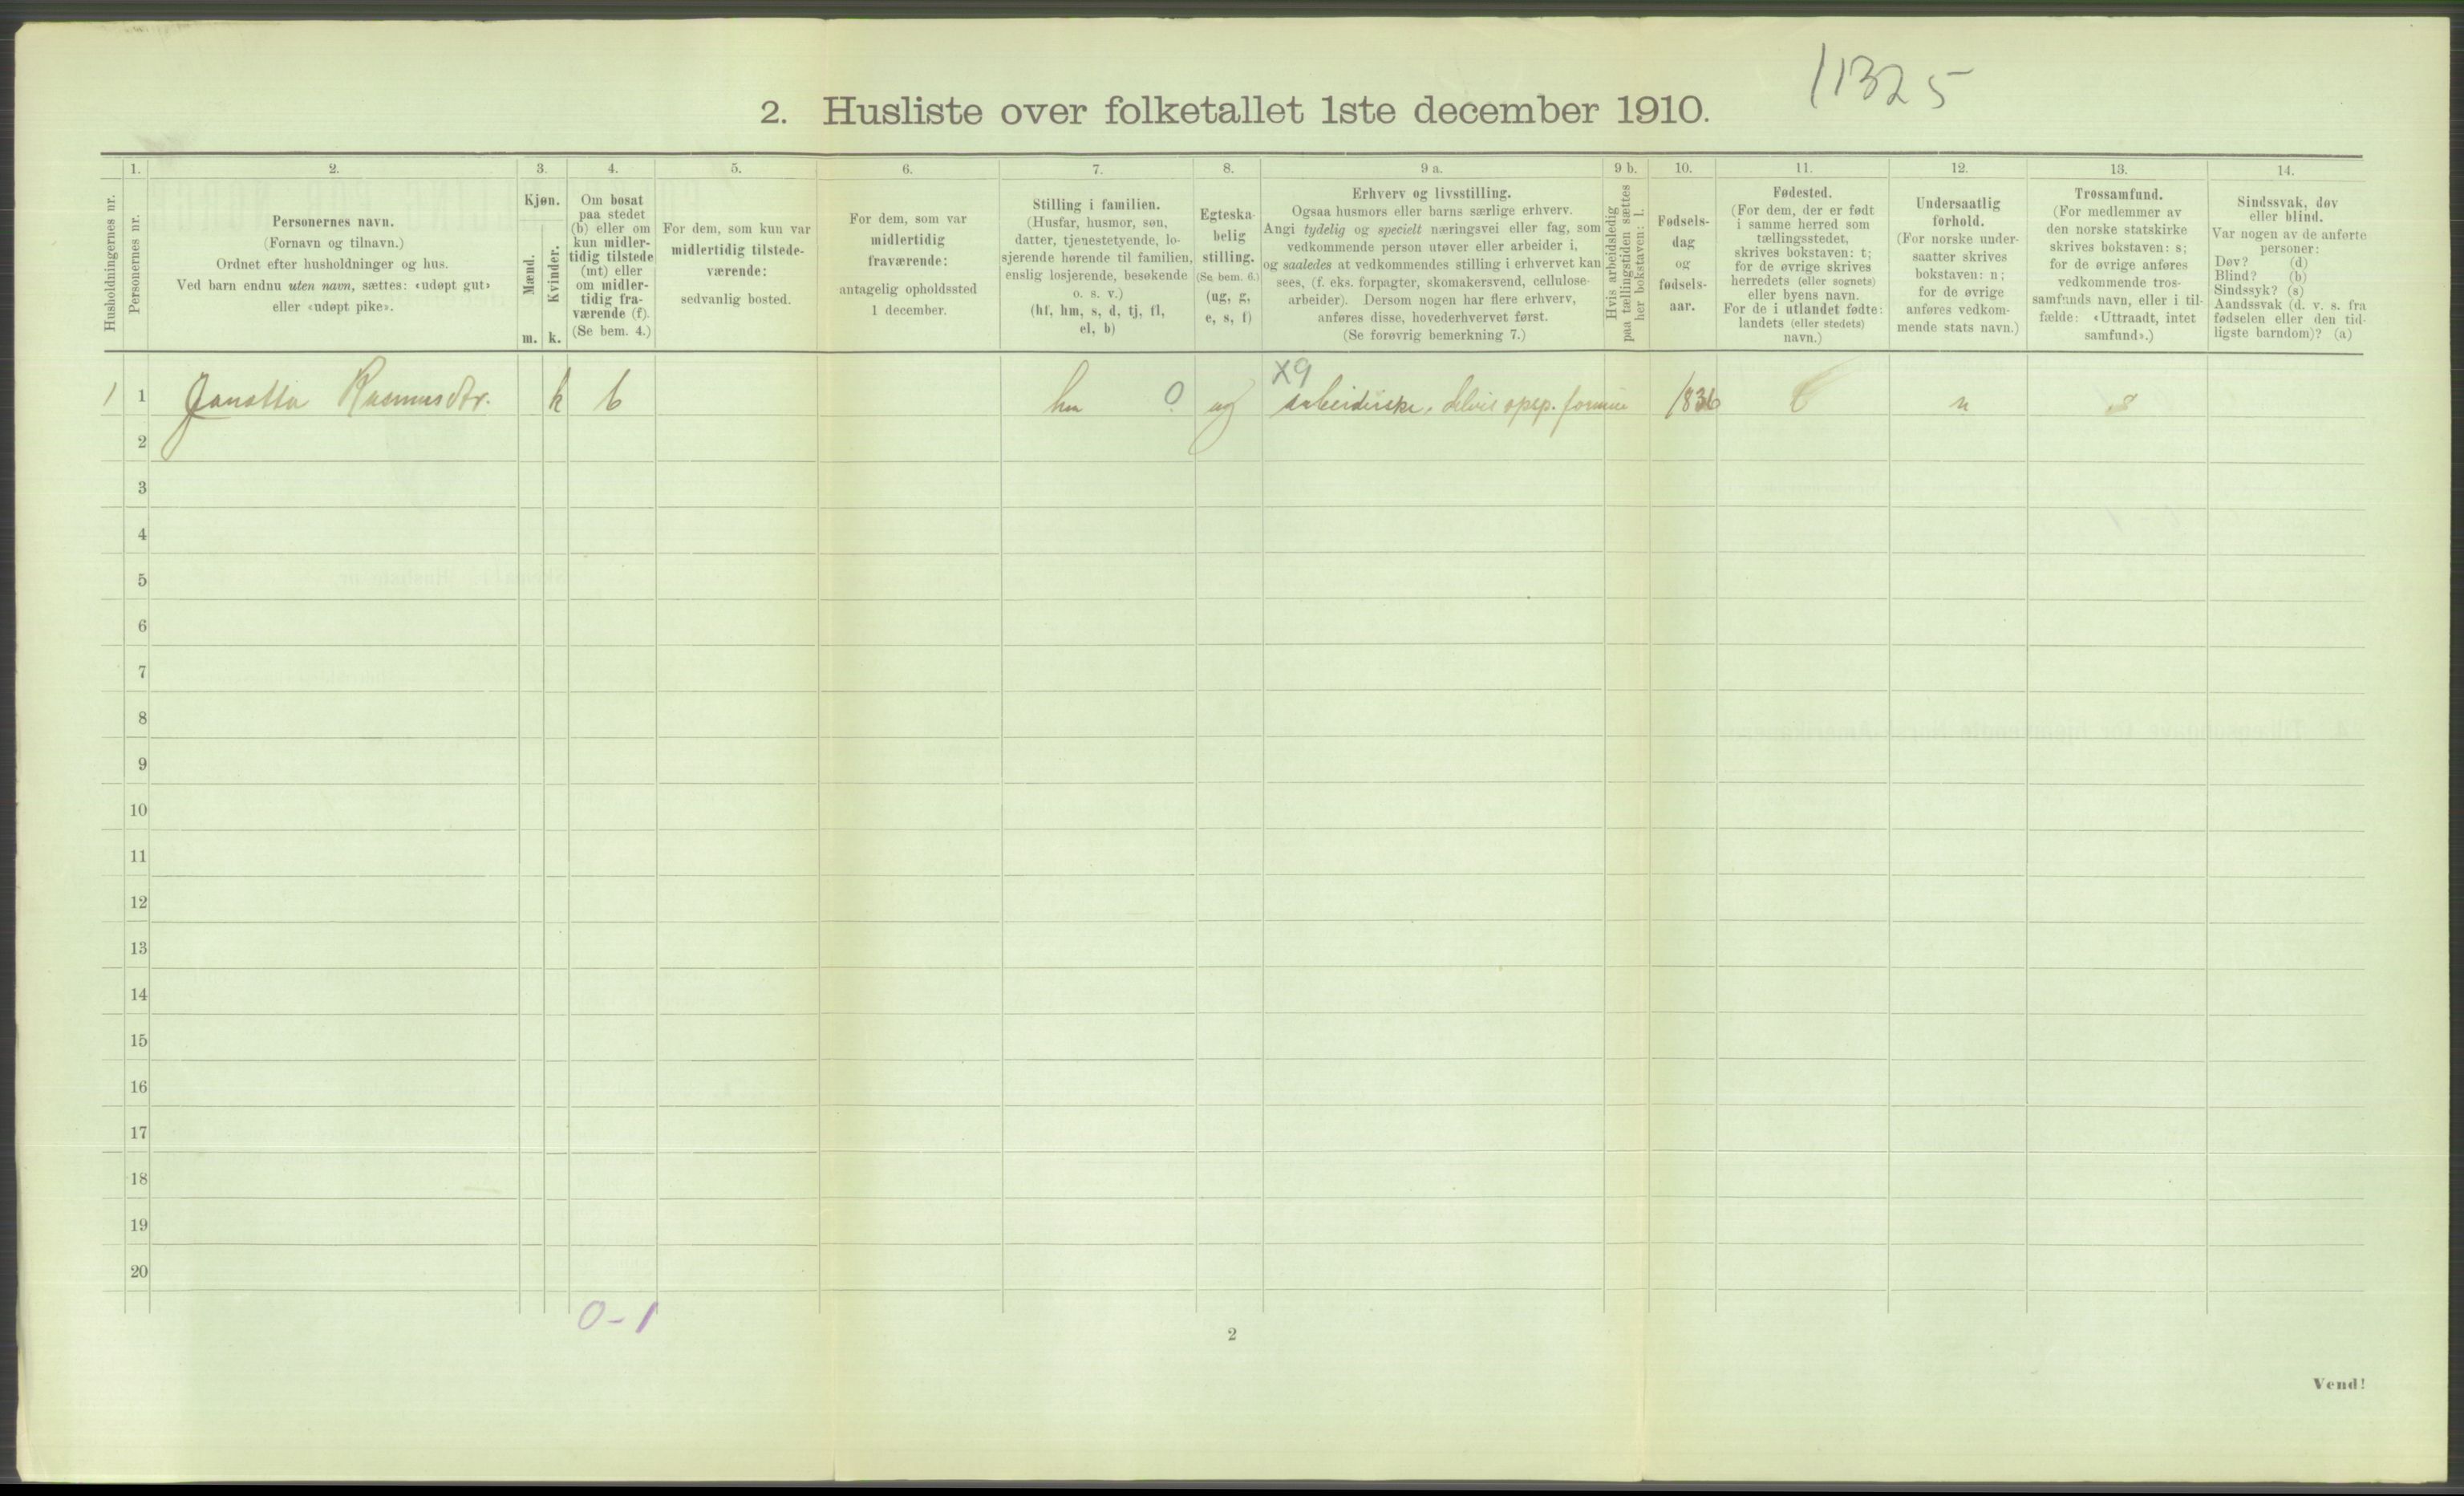 11325
2. Husliste over folketallet 1ste december 1910.
Husholdningernes nr.
1.
Personernes nr.
2.
Personernes navn.
(Fornavn og tilnavn.)
Ordnet efter husholdninger og hus.
Ved barn endnu uten navn, sættes: «udøpt gut»
eller «udøpt pike».
3.
Kjøn.
Mænd.
Kvinder.
m. k.
4.
Om bosat
paa stedet
(b) eller om
kun midler-
tidig tilstede
(mt) eller
om midler-
tidig fra-
værende (f).
(Se bem. 4.)
5.
For dem, som kun var
midlertidig tilstede-
værende:
sedvanlig bosted.
6.
For dem, som var
midlertidig
fraværende:
antagelig opholdssted
1 december.
7.
Stilling i familien.
(Husfar, husmor, søn,
datter, tjenestetyende, lo-
sjerende hørende til familien,
enslig losjerende, besøkende
o. s. v.)
(hf, hm, s, d, tj, fl,
el, b)
8.
Egteska-
belig
stilling.
(Se bem. 6.)
(ug, g,
e, s, f)
9 a.
Erhverv og livsstilling.
Ogsaa husmors eller barns særlige erhverv.
Angi tydelig og specielt næringsvei eller fag, som
vedkommende person utøver eller arbeider i,
og saaledes at vedkommendes stilling i erhvervet kan
sees, (f. eks. forpagter, skomakersvend, cellulose-
arbeider). Dersom nogen har flere erhverv,
anføres disse, hovederhvervet først.
(Se forøvrig bemerkning 7.)
9 b.
Hvis arbeidsledig
paa tællingstiden sættes
her bokstaven: l.
10.
Fødsels-
dag
og
fødsels-
aar.
11.
Fødested.
(For dem, der er født
i samme herred som
tællingsstedet,
skrives bokstaven: t;
for de øvrige skrives
herredets (eller sognets)
eller byens navn.
For de i utlandet fødte:
landets (eller stedets)
navn.)
12.
Undersaatlig
forhold.
(For norske under-
saatter skrives
bokstaven: n;
for de øvrige
anføres vedkom-
mende stats navn.)
13.
Trossamfund.
(For medlemmer av
den norske statskirke
skrives bokstaven: s;
for de øvrige anføres
vedkommende tros-
samfunds navn, eller i til-
fælde: «Uttraadt, intet
samfund».)
14.
Sindssvak, døv
eller blind.
Var nogen av de anførte
personer:
Døv? (d)
Blind? (b)
Sindssyk? (s)
Aandssvak (d. v. s. fra
fødselen eller den tid-
ligste barndom)? (a)
X9
1 1 Janotta Rasmusdtr. k b hm 0 ug arbeiderske, delvis opsp. formue 1836 t n s
2
3
4
5
6
7
8
9
10
11
12
13
14
15
16
17
18
19
20
0-1
2
Vend!